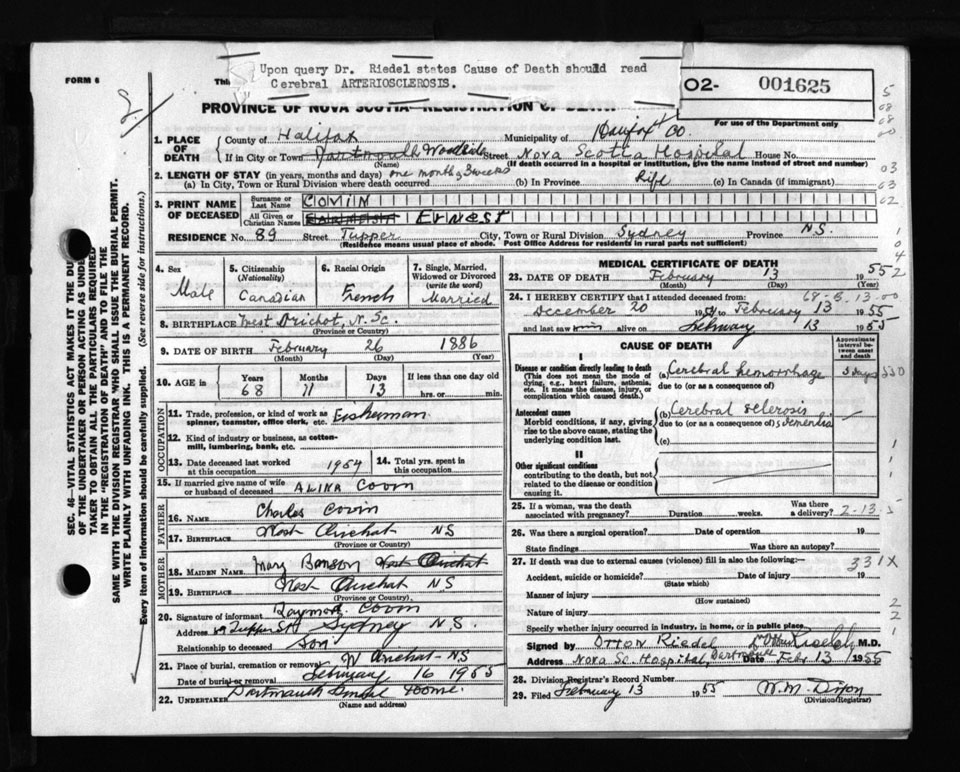 FORM 6
Upon query Dr. Riedel states Cause of Death should read
Cerebral ARTERIOSCLEROSIS.
O2- 001625
For use of the Department only
PROVINCE OF NOVA SCOTIA—REGISTRATION OF DEATH
SEC. 46—VITAL STATISTICS ACT MAKES IT THE DUTY
OF THE UNDERTAKER OR PERSON ACTING AS UNDERTAKER TO OBTAIN ALL THE PARTICULARS REQUIRED
IN THE "REGISTRATION OF DEATH" AND TO FILE THE
SAME WITH THE DIVISION REGISTRAR WHO SHALL ISSUE THE BURIAL PERMIT.
WRITE PLAINLY WITH UNFADING INK. THIS IS A PERMANENT RECORD.
Every item of information should be carefully supplied. (See reverse side for instructions.)
1. PLACE OF DEATH County of Halifax Municipality of Halifax Co.
If in City or Town Dartmouth Woodside Street Nova Scotia Hospital House No.
(Name) (If death occurred in a hospital or institution, give the name instead of street and number)
2. LENGTH OF STAY (in years, months and days) one month & 3 weeks
(a) In City, Town or Rural Division where death occurred (b) In Province Life (c) In Canada (if immigrant)
3. PRINT NAME OF DECEASED Surname or Last Name COVIN
All Given or Christian Names ErnEST
RESIDENCE No. 89 Street Tupper City, Town or Rural Division Sydney Province N.S.
(Residence means usual place of abode. Post Office Address for residents in rural parts not sufficient)
4. Sex Male
5. Citizenship (Nationality) Canadian
6. Racial Origin French
7. Single, Married, Widowed or Divorced (write the word) Married
8. BIRTHPLACE West Arichat, N. Sc.
(Province or Country)
9. DATE OF BIRTH February 26 1886
(Month) (Day) (Year)
10. AGE in Years 68 Months 11 Days 13 If less than one day old hrs. or min.
OCCUPATION
11. Trade, profession, or kind of work as spinner, teamster, office clerk, etc. Fisherman
12. Kind of industry or business, as cotton-mill, lumbering, bank, etc.
13. Date deceased last worked at this occupation 1954 14. Total yrs. spent in this occupation
15. If married give name of wife or husband of deceased ALINA Covin
FATHER
16. NAME Charles Covin
17. BIRTHPLACE West Arichat NS
(Province or Country)
MOTHER
18. MAIDEN NAME Mary Benson West Arichat
19. BIRTHPLACE West Arichat NS
(Province or Country)
20. Signature of informant Raymond Covin
Address 89 Tupper St Sydney N.S.
Relationship to deceased Son
21. Place of burial, cremation or removal W Arichat NS
Date of burial or removal February 16 1955
22. UNDERTAKER Dartmouth Funeral Home
(Name and address)
MEDICAL CERTIFICATE OF DEATH
23. DATE OF DEATH February 13 1955
(Month) (Day)
24. I HEREBY CERTIFY that I attended deceased from:
December 20 1954 to February 13 1955
and last saw him alive on February 13 1955
CAUSE OF DEATH
Approximate interval between onset and death
Disease or condition directly leading to death
(This does not mean the mode of dying, e.g., heart failure, asthenia, etc. It means the disease, injury, or complication which caused death.)
(a) Cerebral hemorrhage 3 days 330
due to (or as a consequence of)
Antecedent causes
Morbid conditions, if any, giving rise to the above cause, stating the underlying condition last.
(b) Cerebral sclerosis
due to (or as a consequence of) dementia
(c)
II
Other significant conditions
contributing to the death, but not related to the disease or condition causing it.
25. If a woman, was the death associated with pregnancy? Duration weeks. Was there a delivery?
26. Was there a surgical operation? Date of operation 19
State findings Was there an autopsy?
27. If death was due to external causes (violence) fill in also the following:— 331X
Accident, suicide or homicide? Date of injury 19
(State which)
Manner of injury
(How sustained)
Nature of injury
Specify whether injury occurred in industry, in home, or in public place.
Signed by OTTON RIEDEL M.D.
Address Nova Sc. Hospital, Dartmouth Date Febr 13 1955
28. Division Registrar's Record Number
29. Filed February 13 1955 W. M. Dixon
(Division Registrar)